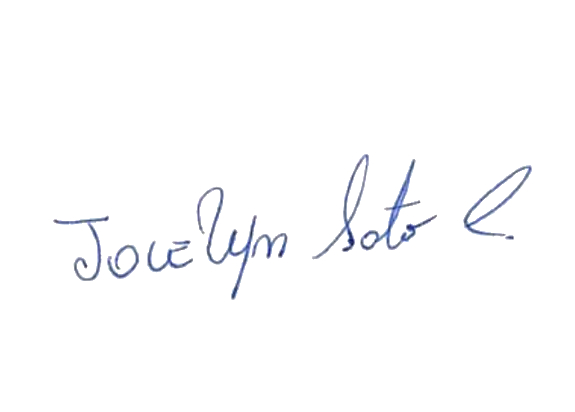 Jocelyn Soto C.